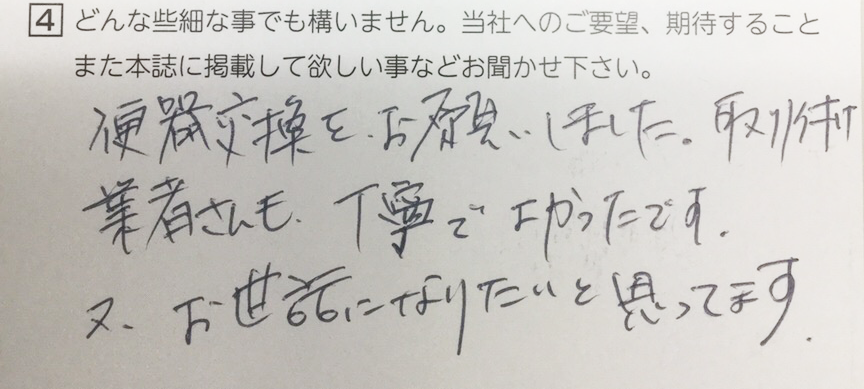 4 どんな些細な事でも構いません。当社へのご要望、期待すること
また本誌に掲載して欲しい事などお聞かせ下さい。
便器交換を、お願いしました。取り付け
業者さんも、丁寧でよかったです。
又、お世話になりたいと思ってます。